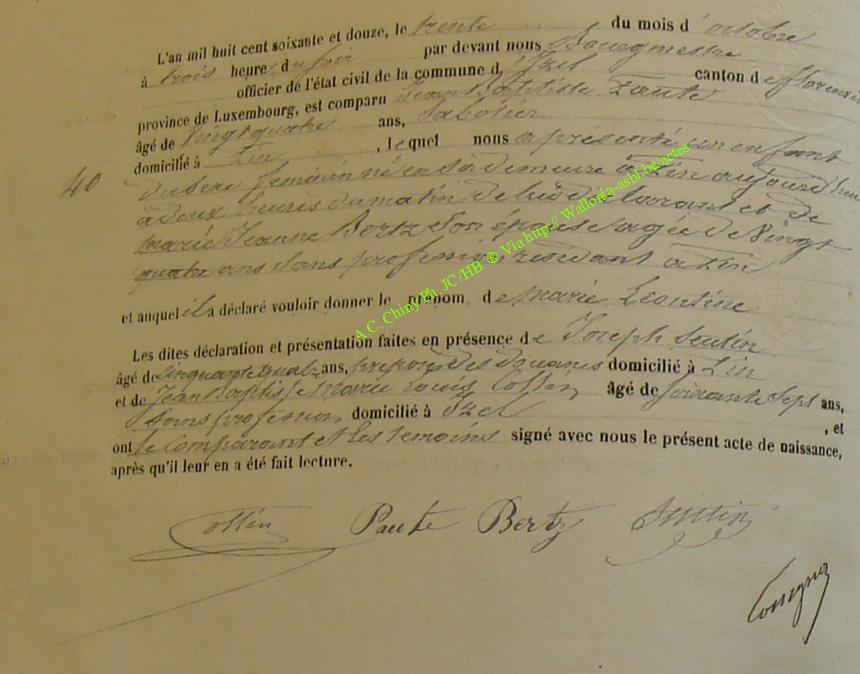 L'an mil huit cent soixante et douze, le trente du mois d'octobre
à trois heure du soir par devant nous Bourgmestre
officier de l'état civil de la commune d'Izel canton de Florenville
province de Luxembourg, est comparu Jean Baptiste Paute
âgé de vingt quatre ans, Sabotier
domicilié à Pin, lequel nous a présenté un enfant
40
du sexe féminin né en sa demeure à Pin aujourd'hui
à deux heures du matin de lui déclarant et de
marie Jeanne Bertz Son épouse agée de Vingt
quatre ans Sans profession résidant à Pin
et auquel il a déclaré vouloir donner le prénom de marie Léontine
Les dites déclaration et présentation faites en présence de Joseph
âgé de cinquante quatre ans, préposé des douanes domicilié à Pin
et de Jean Baptiste Marie Louis Collin âgé de soixante Sept ans,
Sans profession domicilié à Izel, et
ont le Comparant et les temoins signé avec nous le présent acte de naissance,
après qu'il leur en a été fait lecture.
Collin Paute Bertz
A.C. Chiny Ph. JC/HB ® Via http:// Wallonia-asbl.be/actes